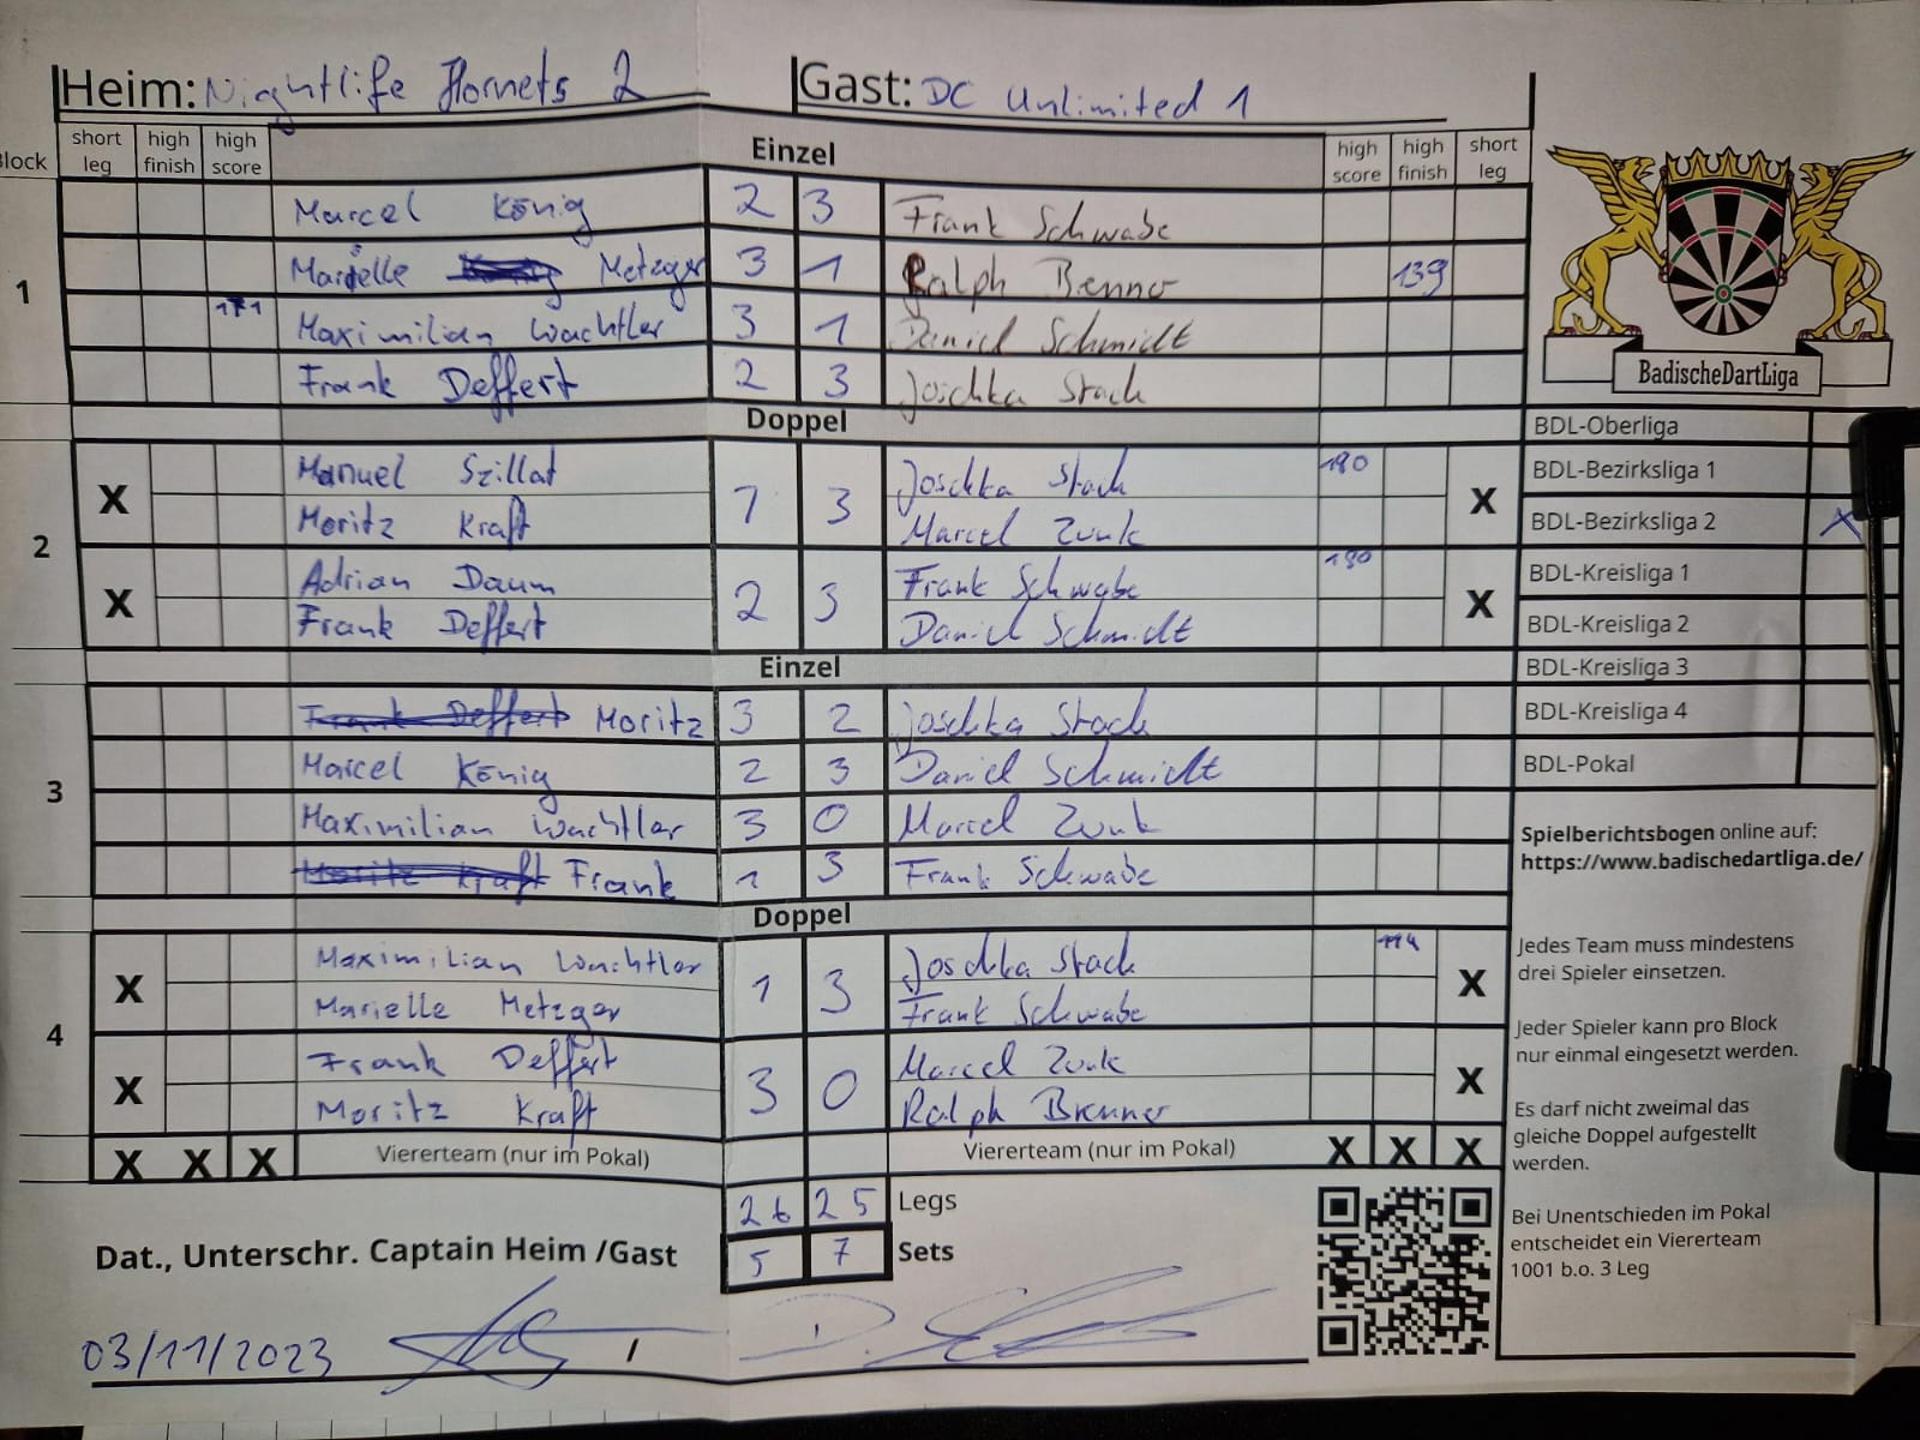 Heim: Nightlife Hornets 2 Gast: DC Unlimited 1
Block short leg high finish high score Einzel high score high finish short leg
1
Marcel König 2 3 Frank Schwabe
Marielle Metzger 3 1 Ralph Benno 139
171 Maximilian Wachtler 3 1 Daniel Schmidt
Frank Deffert 2 3 Joschka Stach
Doppel
2
X Manuel Szillat 1 3 Joschka Stach 180 X
Moritz Kraft Marcel Zunk
X Adrian Daum 2 3 Frank Schwabe 180 X
Frank Deffert Daniel Schmidt
Einzel
3
Frank Deffert Moritz 3 2 Joschka Stach
Marcel König 2 3 Daniel Schmidt
Maximilian Wachtler 3 0 Marcel Zunk
Moritz Kraft Frank 1 3 Frank Schwabe
Doppel
4
X Maximilian Wachtler 1 3 Joschka Stach 114 X
Marielle Metzger Frank Schwabe
X Frank Deffert 3 0 Marcel Zunk X
Moritz Kraft Ralph Brenner
X X X Viererteam (nur im Pokal) Viererteam (nur im Pokal) X X X
26 25 Legs
5 7 Sets
Dat., Unterschr. Captain Heim /Gast
03/11/2023 /
BadischeDartLiga
BDL-Oberliga
BDL-Bezirksliga 1
BDL-Bezirksliga 2 X
BDL-Kreisliga 1
BDL-Kreisliga 2
BDL-Kreisliga 3
BDL-Kreisliga 4
BDL-Pokal
Spielberichtsbogen online auf:
https://www.badischedartliga.de/
Jedes Team muss mindestens
drei Spieler einsetzen.
Jeder Spieler kann pro Block
nur einmal eingesetzt werden.
Es darf nicht zweimal das
gleiche Doppel aufgestellt
werden.
Bei Unentschieden im Pokal
entscheidet ein Viererteam
1001 b.o. 3 Leg